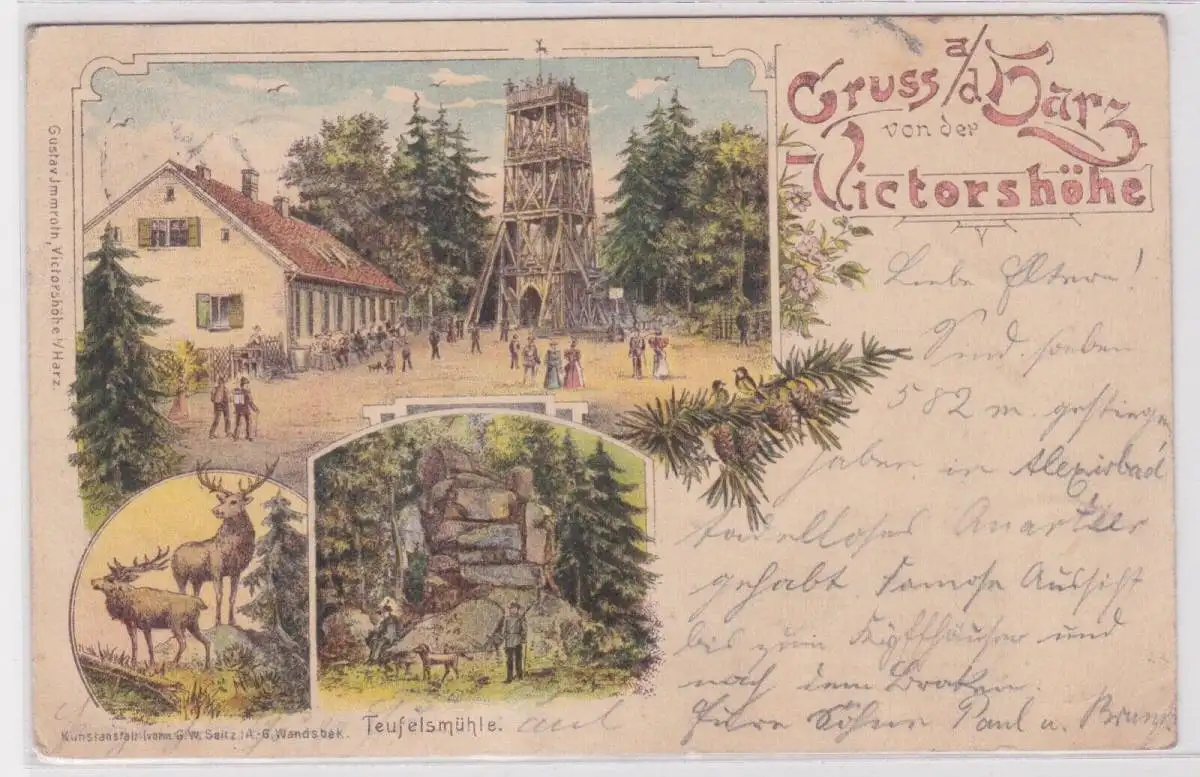 Gruss a/d Harz
von der
Victorshöhe
Gustav Immroth, Victorshöhe i/Harz.
Liebe Eltern!
Sind soeben
582 m. gestiegen
haben in Alexisbad
tadelloses Quartier
gehabt. Famose Aussicht
bis zum Kyffhäuser und
nach dem Brocken.
Eure Söhne Paul u.
Teufelsmühle.
Kunstanstalt (vorm. G. W. Seitz) A.-G. Wandsbek.